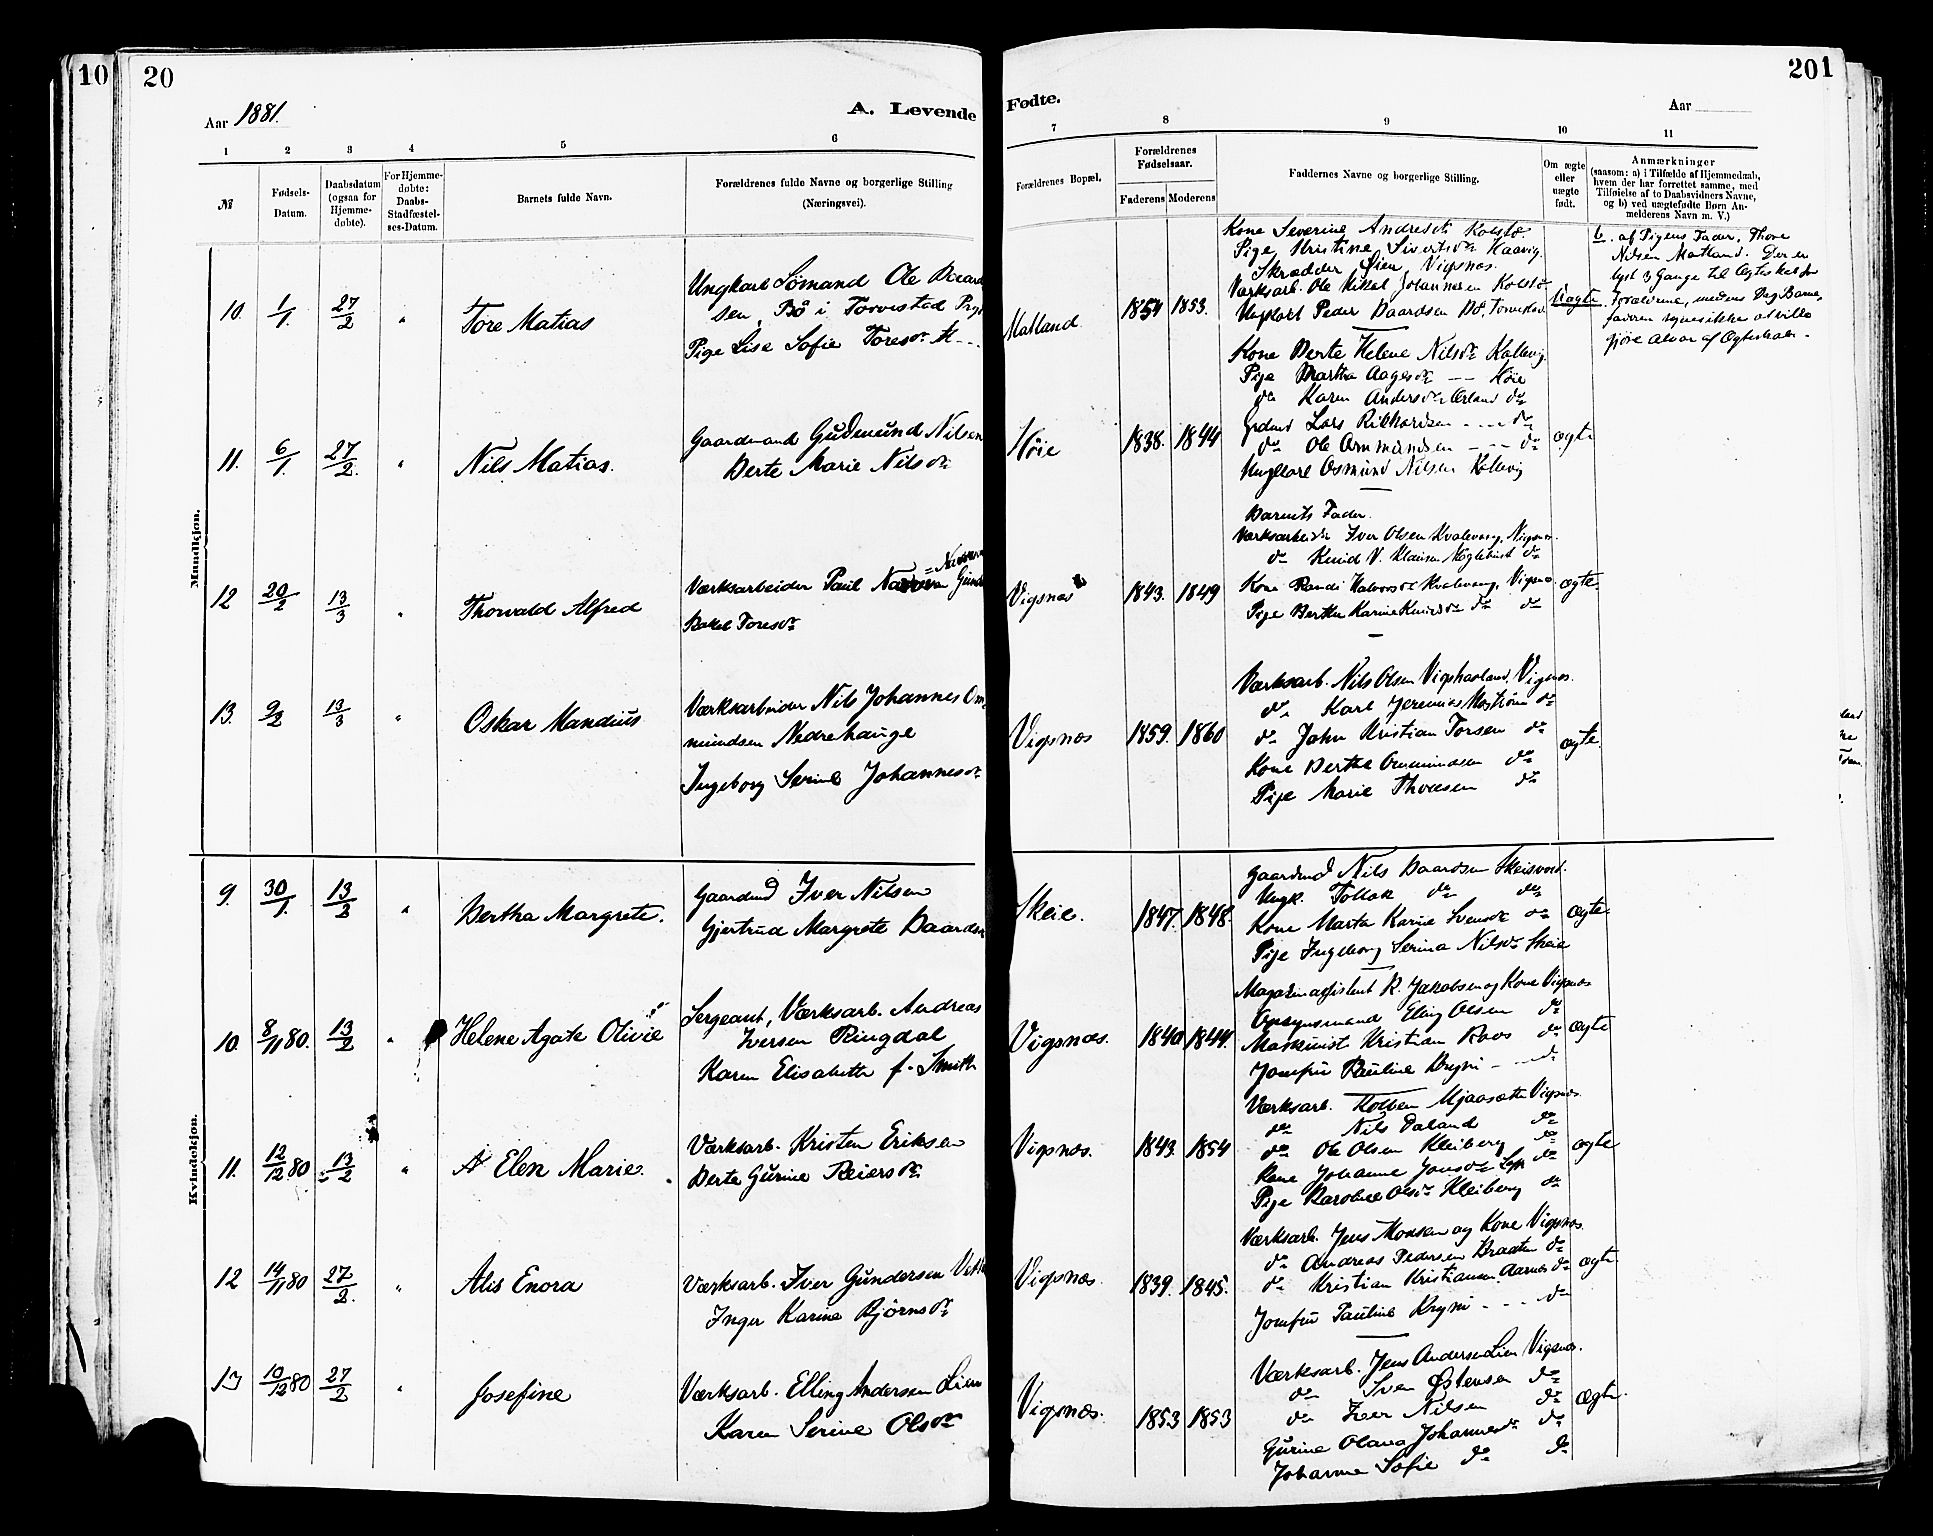 10
20
201
Aar 1881.
A. Levende
Fødte.
Aar
1
2
3
4
5
6
7
8
9
10
11
№
Fødsels-
Datum.
Daabsdatum
(ogsaa for
Hjemme-
døbte).
For Hjemme-
døbte:
Daabs-
Stadfæstel-
ses-Datum.
Barnets fulde Navn.
Forældrenes fulde Navne og borgerlige Stilling
(Næringsvei).
Forældrenes Bopæl.
Forældrenes
Fødselsaar.
Faderens
Moderens
Faddernes Navne og borgerlige Stilling.
Om ægte
eller
uægte
født.
Anmærkninger
(saasom: a) i Tilfælde af Hjemmedaab,
hvem der har forrettet samme, med
Tilføielse af to Daabsvidners Navne,
og b) ved uægtefødte Børn An-
melderens Navn m. V.)
Mandkjøn.
10. 1/1. 27/2 „ Tore Matias
Ungkarl Sømand Ole
sen, Bø i Torvestad
Pige Lise Sofie Toresdr
Matland
1854 1853.
Kone Severine Andresdr Kolstø
Pige Kristine Sivertsdr Haavig.
Skrædder Øien, Vigsnæs.
Værksarb. Ole Mikal Johannesen Kolstø
Ungkarl Peder Baardsen Bø, Torvestad
Uægte
b. af Pigens Fader, Thore
Nilsen Matland. Der er
lyst 3 Gange til Ægteskab for
Forældrene, medens Barne-
faderen synes ikke at ville
gjøre Alvor af Ægteskabet.
11. 6/1. 27/2. „ Nils Matias.
Gaardmand Gudmund Nilsen
Berte Marie Nilsdr
Høie
1838. 1844
Kone Berte Helene Nilsdr Kallevig.
Pige Martha Aagesdr -- Høie
do Karen Andersdr Ørland do
Grdmd Lars Rikhardsen ---- do
do Ole Ommundsen ---- do
Ungkarl Osmund Nilsen Kallevig
ægte
12 20/2 13/3 „ Thorvald Alfred
Værksarbeider Paul
Rakel Toresdr
Vigsnæs
1843. 1849
Barnets Fader.
Værksarbeider Iver Olsen Kvalevaag, Vigsnæs.
do Knud V. Klausen do
Kone Randi Halvorsdr Kvalevaag, Vigsnæs
Pige Berthe Karine Knudsdr do do
ægte.
13. 9/2 13/3 „ Oskar Mandius
Værksarbeider Nils Johannes Om-
mundsen Nedrehauge
Ingeborg Serine Johannesdr
Vigsnæs
1859. 1860
Værksarb. Nils Olsen Vigshaaland, Vigsnæs.
do Karl Jeremias do
do John Kristian Torsen do
Kone Berthe Ommundsen do
Pige Marie Thorsen do
ægte.
Kvindekjøn.
9. 30/1. 13/2 „ Bertha Margrete.
Gaardmd Iver Nilsen
Gjertrud Margrete Baardsdr
Skeie.
1847. 1848.
Gaardmd Nils Baardsen Skeisvold.
Ungk. Tollak do do
Kone Marta Karine Svensdr do
Pige Ingeborg Serina Nilsdr Skeie
ægte.
10. 8/11 80. 13/2 „ Helene Agate Olivie
Sergeant, Værksarb. Andreas
Iversen Ringdal
Karen Elisabeth f. Smith
Vigsnæs.
1840 1844.
Magazinassistent R. Jakobsen og Kone Vigsnæs
Opsynsmand Eling Olsen do
Maskinist Kristian Roos do
Jomfru Pauline Kryni - do
ægte
11. 12/12 80 13/2 „ Elen Marie.
Værksarb. Kristen Eriksen
Berte Gurine Reiersdr
Vigsnæs.
1843. 1854
Værksarb. Kolben Mjaasæth Vigsnæs.
do Nils Daland do
do Ole Olsen Kleiberg do
Kone Johanne Jonsdr do
Pige Karoline Olsdr Kleiberg do
ægte
12 14/11 80 27/2. „ Alis Enora
Værksarb. Iver Gundersen
Inger Karine Bjørnsdr
Vigsnæs.
1839. 1845.
Værksarb. Jens Monsen og Kone Vigsnæs
do Andreas Pedersen Braaten do
do Kristian Kristiansen Aarnes do
Jomfru Pauline Kryni --- do
ægte
13 10/12 80 27/2 „ Josefine
Værksarb. Elling Andersen Lien
Karen Serine Olsdr
Vigsnæs.
1853 1853
Værksarb. Jens Andersen Lien Vigsnæs.
do Sven Østensen do
do Iver Nilsen do
Gurine Olava Johannesdr do
Johanne Sofie do do
ægte.